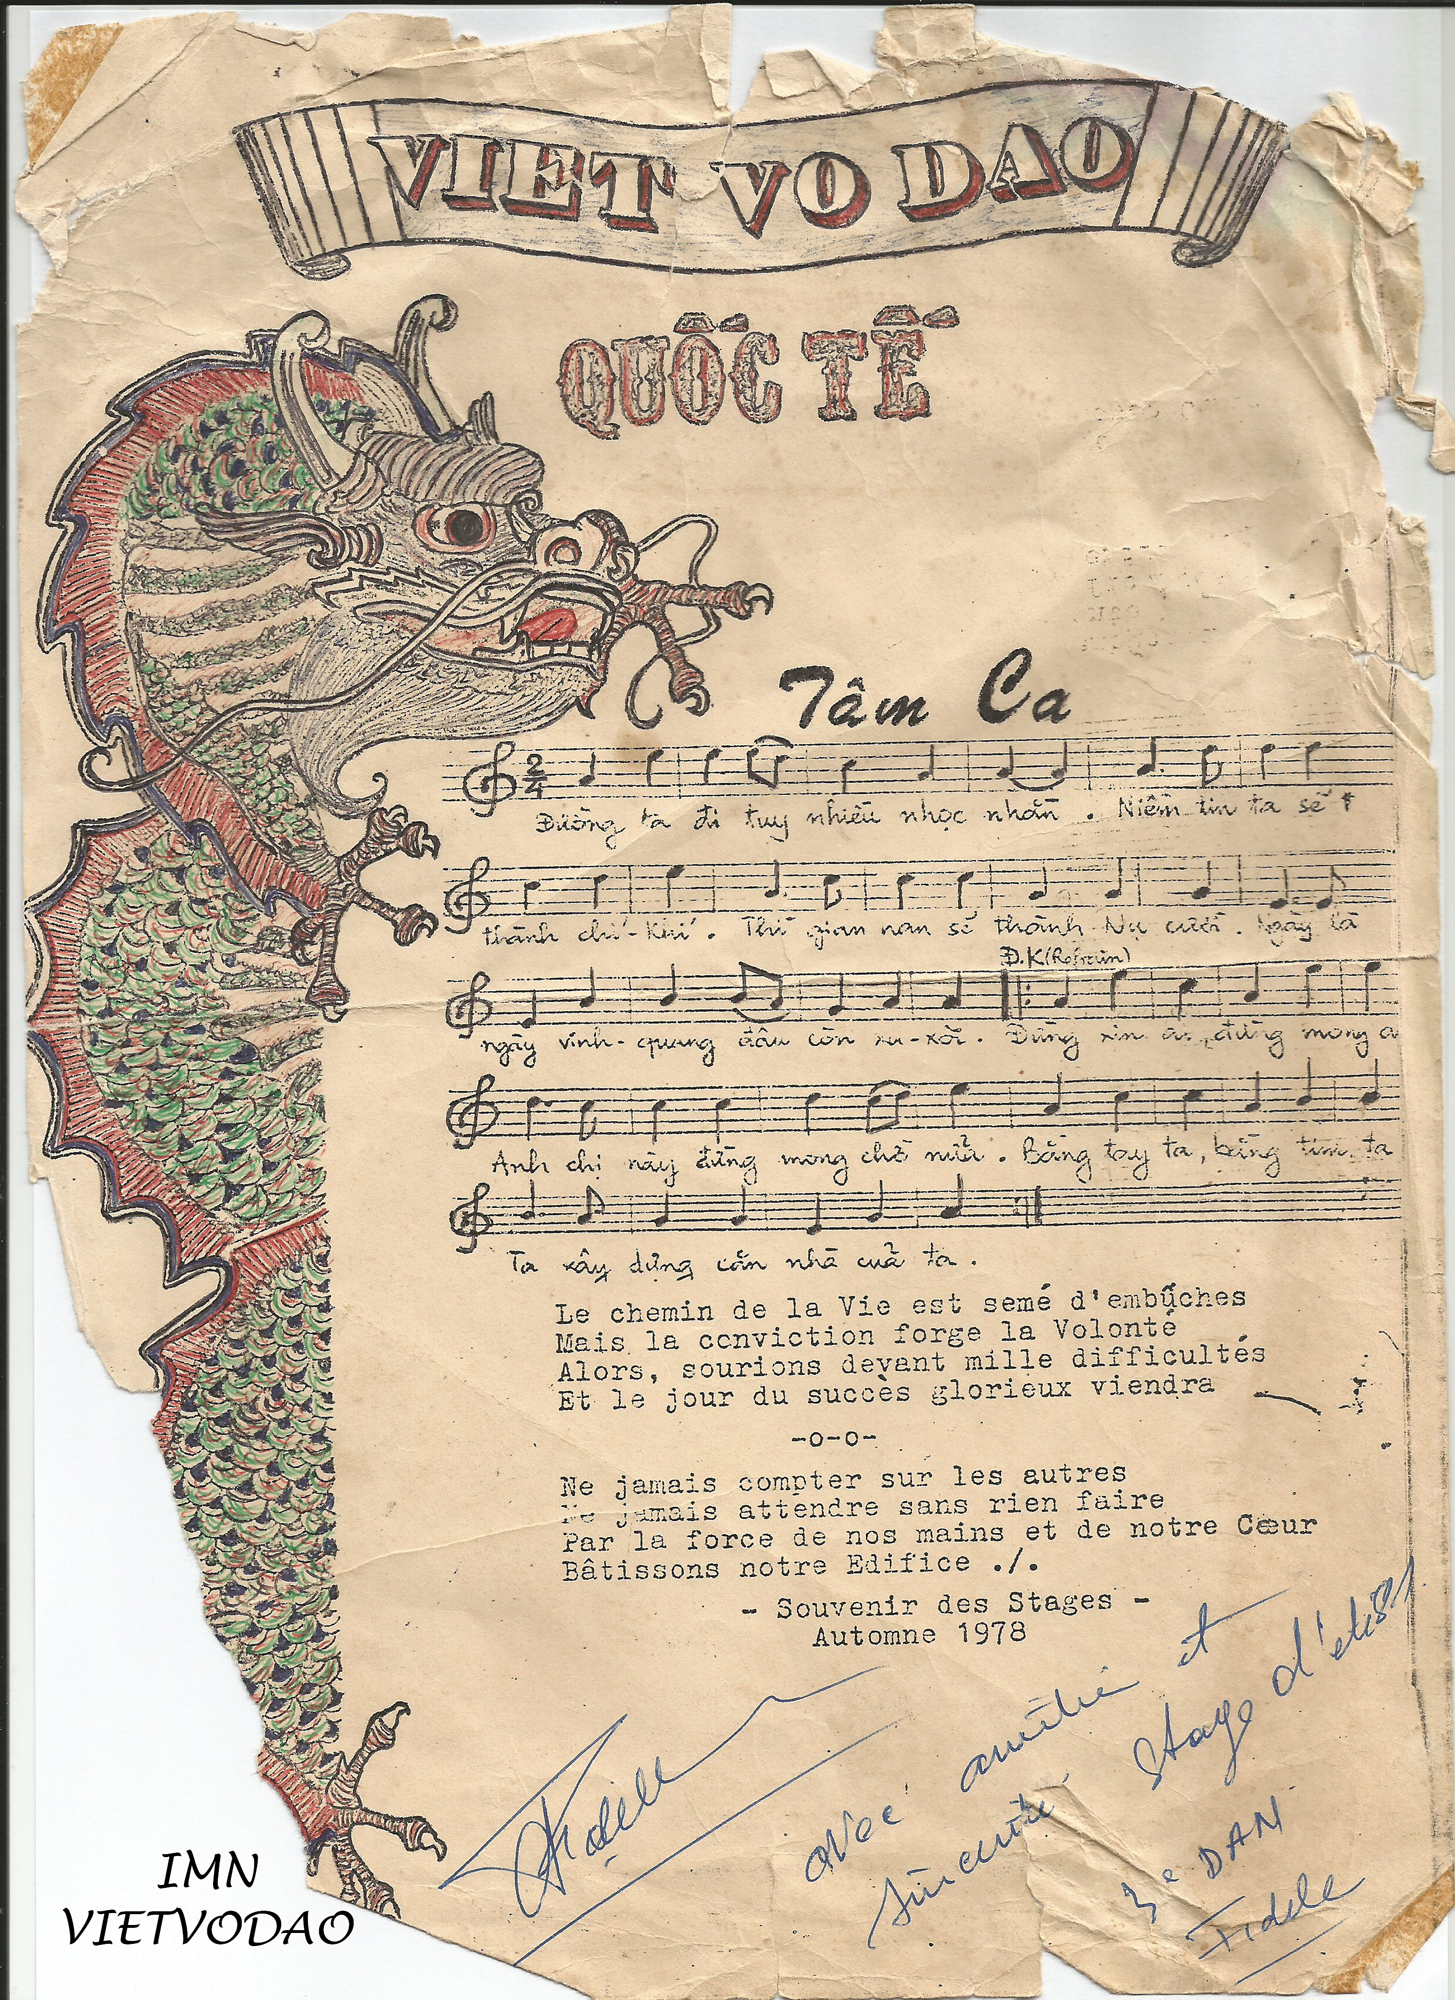 VIET VO DAO
QUỐC TẾ
Tâm Ca
2
4
Đường ta đi tuy nhiều nhọc nhằn . Niềm tin ta sẽ t
thành chí-khí . Thì gian nan sẽ thành Nụ cười . Ngày là
Đ.K(Refrain)
ngày vinh-quang đâu còn xa-xôi . Đừng xin ai, đừng mong a
Anh chị này đừng mong chờ nữa . Bằng tay ta, bằng tim ta
Ta xây dựng căn nhà của ta .
Le chemin de la Vie est semé d'embûches
Mais la conviction forge la Volonté
Alors, sourions devant mille difficultés
Et le jour du succès glorieux viendra
-o-o-
Ne jamais compter sur les autres
Ne jamais attendre sans rien faire
Par la force de nos mains et de notre Cœur
Bâtissons notre Edifice ./.
- Souvenir des Stages -
Automne 1978
Fidele
avec amitié et
sincérité Stage d'eté 81
3e DAN
Fidele
IMN
VIETVODAO